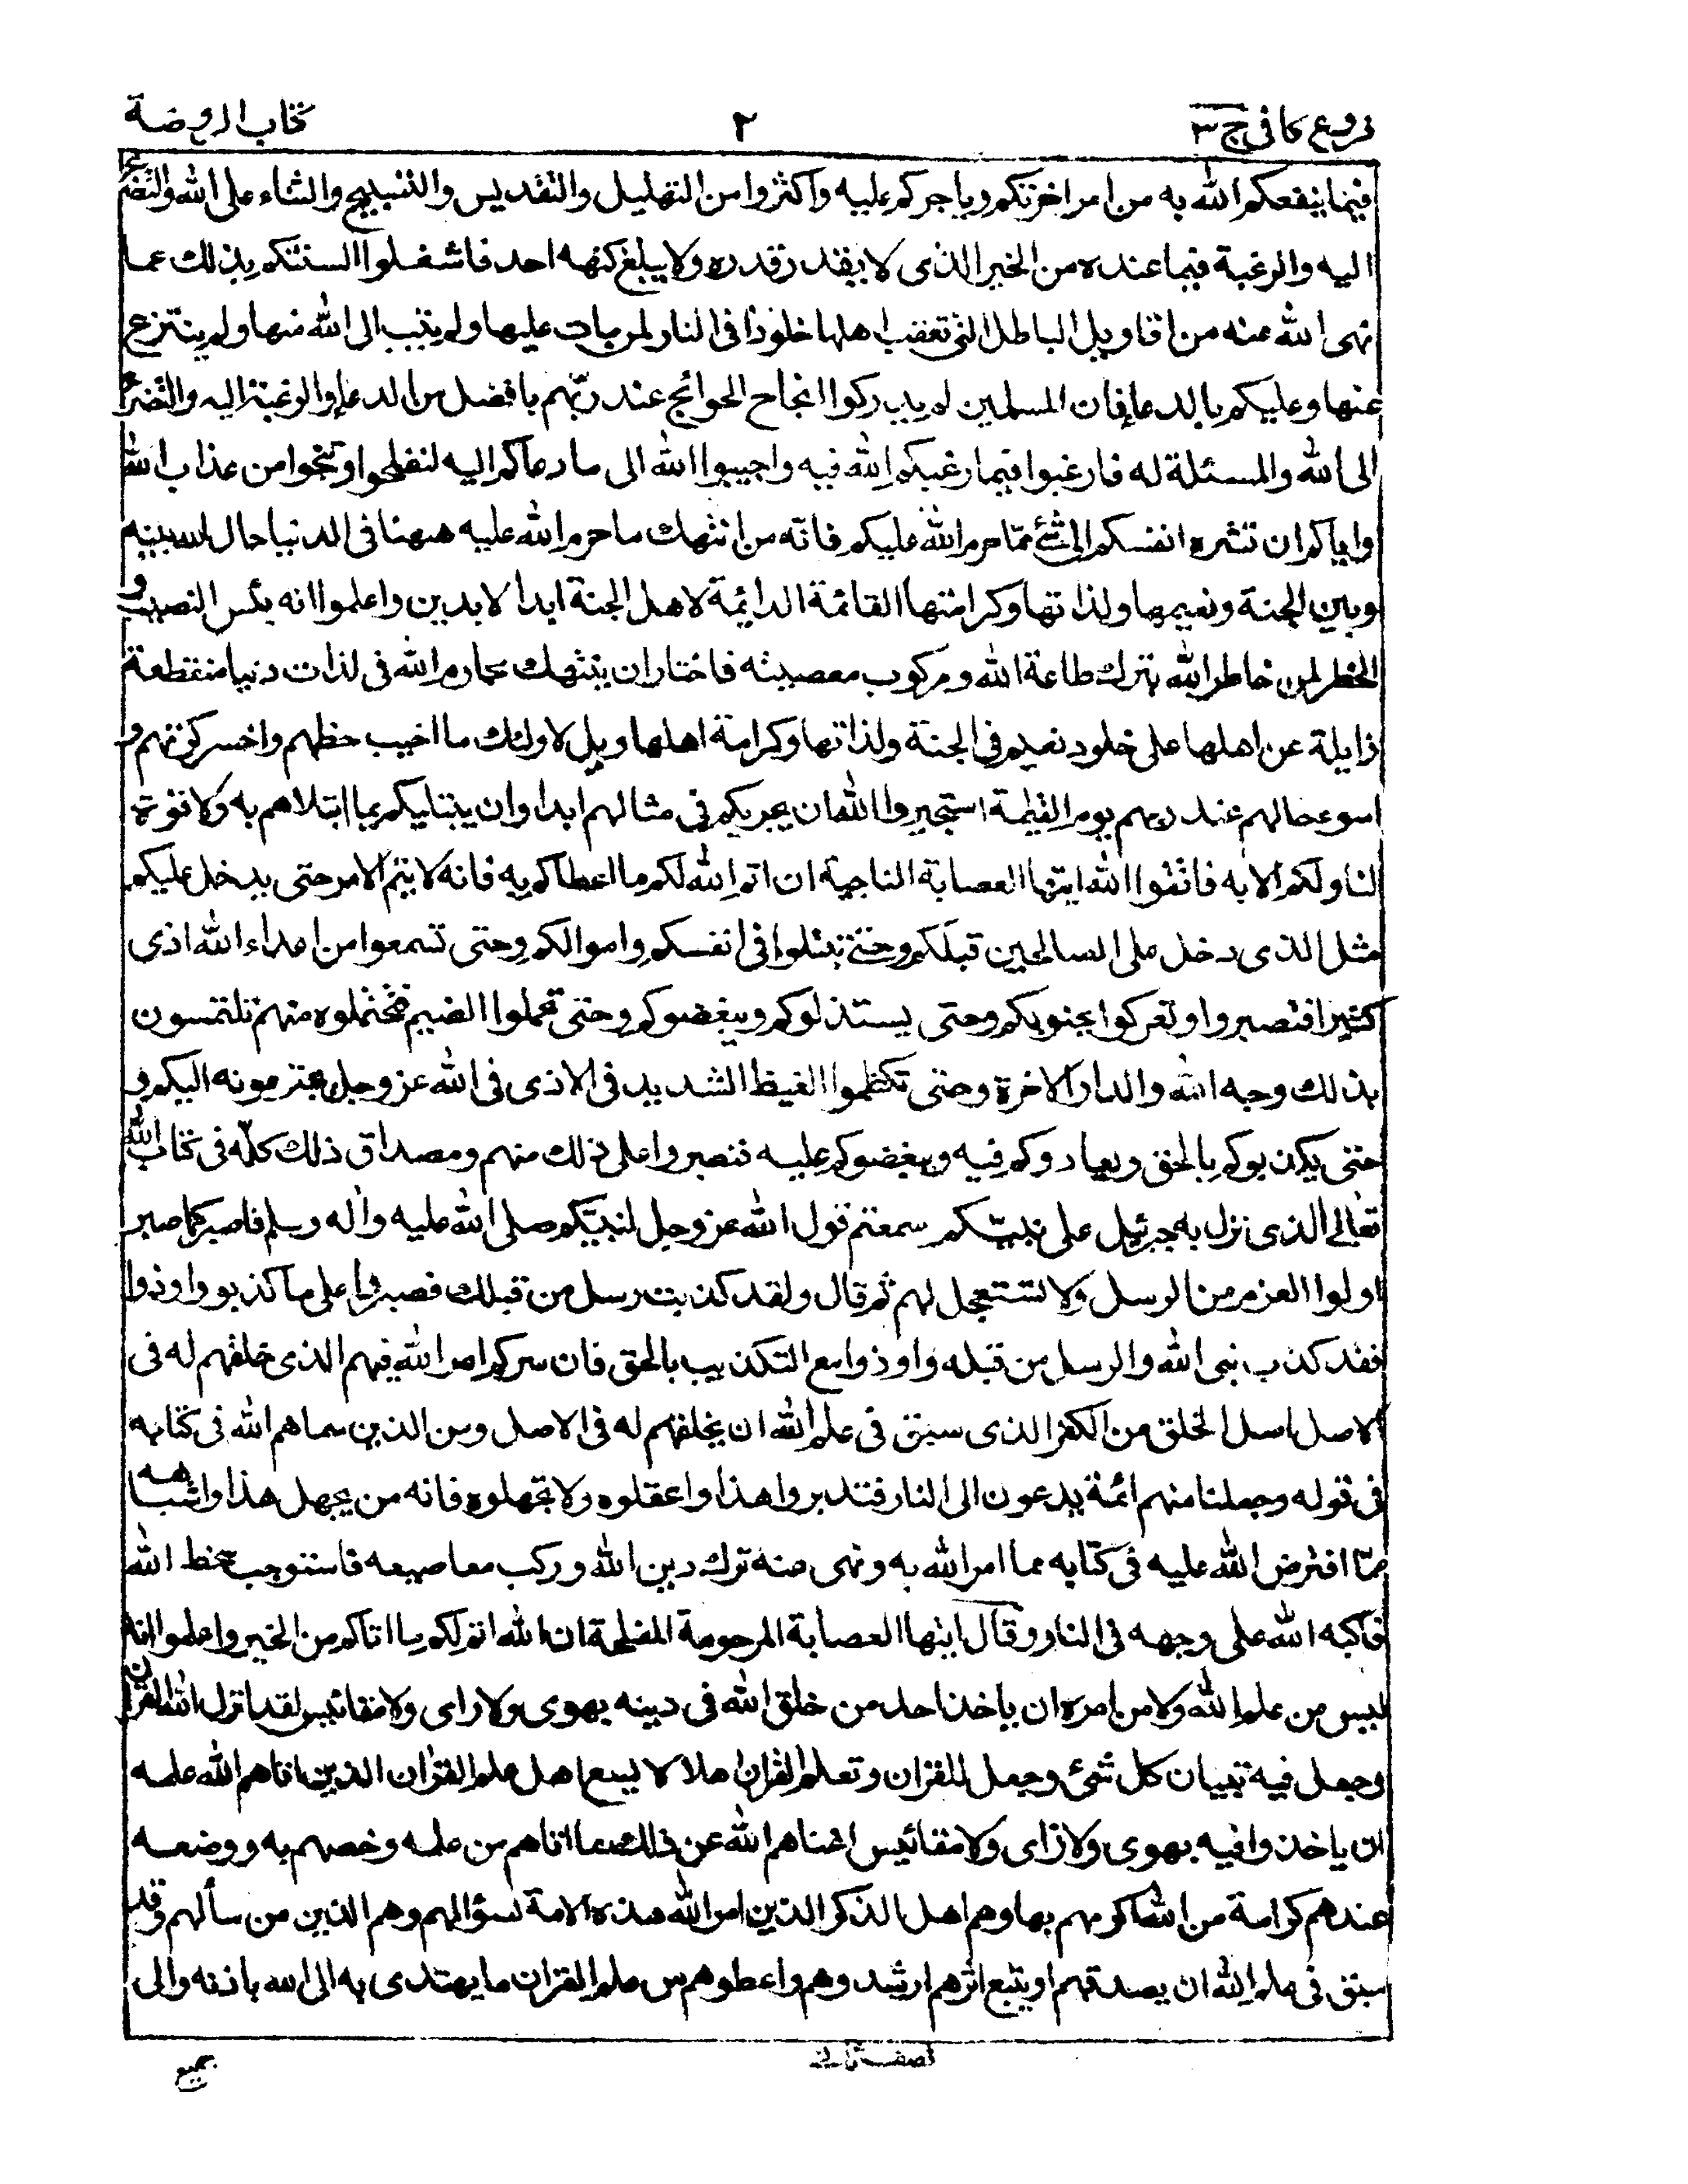 فروع کافی ج ۳
۲
کتاب الروضة
فیما ینفعکم الله به من امر اخرتکم ویاجرکم علیه واکثروا من التهلیل والتقدیس والتسبیح والثناء علی الله والتضرع
الیه والرغبة فیما عنده من الخیر الذی لا یقدر قدره ولا یبلغ کنهه احد فاشغلوا السنتکم بذلك عما
نهی الله عنه من اقاویل الباطل التی تعقب اهلها خلودا فی النار لمن مات علیها ولم یتب الی الله منها ولم ینتزع
عنها وعلیکم بالدعاء فان المسلمین لم یدرکوا انجاح الحوائج عند ربّهم بافضل من الدعاء والرغبة الیه والتضرّع
الی الله والمسئلة له فارغبوا فیما رغبکم الله فیه واجیبوا الله الی ما دعاکم الیه لتفلحوا وتنجوا من عذاب الله
وایاکم ان تشره انفسکم الی شئ ممّا حرم الله علیکم فانّه من انتهك ما حرم الله علیه ههنا فی الدنیا حال الله بینه
وبین الجنة ونعیمها ولذاتها وکرامتها القائمة الدائمة لاهل الجنة ابدا لابدین واعلموا انه بئس النصیب و
الخطر لمن خاطر الله بترك طاعة الله ومرکوب معصیته فاختار ان ینتهك محارم الله فی لذات دنیا منقطعة
زایلة عن اهلها علی خلود نعیم فی الجنة ولذاتها وکرامة اهلها ویل لاولئك ما اخیب حظهم واخسر کرتهم و
اسوء حالهم عند ربهم یوم القیٰمة استجیروا الله ان یجریکم فی مثالهم ابدا وان یبتلیکم بما ابتلاهم به ولا قوة
لنا ولکم الا به فاتقوا الله ایتها العصابة الناجیة ان اتم الله لکم ما اعطاکم به فانه لا یتم الامر حتی یدخل علیکم
مثل الذی دخل علی الصالحین قبلکم وحتی تبتلوا فی انفسکم واموالکم وحتی تسمعوا من اعداء الله اذی
کثیرا فتصبروا وتعرکوا بجنوبکم وحتی یستذلوکم ویبغضوکم وحتی تحملوا الضیم فتحتملوه منهم تلتمسون
بذلك وجه الله والدار الاخرة وحتی تکظموا الغیظ الشدید فی الاذی فی الله عز وجل یجترمونه الیکم و
حتی یکذبوکم بالحق ویعادوکم فیه ویبغضوکم علیه فتصبروا علی ذلك منهم ومصداق ذلك کلّه فی کتاب الله
تعالی الذی نزل به جبرئیل علی نبیّکم سمعتم قول الله عز وجل لنبیّکم صلی الله علیه واٰله وسلم فاصبر کما صبر
اولوا العزم من الرسل ولا تستعجل لهم ثم قال ولقد کذبت رسل من قبلك فصبروا علی ما کذبوا واوذوا
فقد کذب نبی الله والرسل من قبله واوذوا مع التکذیب بالحق فان سرکم امر الله فیهم الذی خلقهم له فی
الاصل اصل الخلق من الکفر الذی سبق فی علم الله ان یخلقهم له فی الاصل ومن الذین سماهم الله فی کتابه
فی قوله وجعلنا منهم ائمة یدعون الی النار فتدبروا هذا واعقلوه ولا تجهلوه فانه من یجهل هذا واشباهه
ممّا افترض الله علیه فی کتابه مما امر الله به ونهی عنه ترك دین الله ورکب معاصیه فاستوجب سخط الله
فاکبه الله علی وجهه فی النار وقال ایتها العصابة المرحومة المفلحة ان الله اتم لکم ما اتاکم من الخیر واعلموا انه
لیس من علم الله ولا من امره ان یاخذ احد من خلق الله فی دینه بهوی ولا رای ولا مقائیس لقد انزل الله القران
وجعل فیه تبیان کل شئ وجعل للقران وتعلم القران اهلا لا یسع اهل علم القران الذین اتاهم الله علمه
ان یاخذوا فیه بهوی ولا رای ولا مقائیس اغناهم الله عن ذلك بما اتاهم من علمه وخصهم به ووضعه
عندهم کرامة من الله اکرمهم بها وهم اهل الذکر الذین امر الله هذه الامة بسؤالهم وهم الذین من سألهم وقد
سبق فی علم الله ان یصدقهم ویتبع اثرهم ارشدوهم واعطوهم من علم القران ما یهتدی به الی الله باذنه والی
جمیع